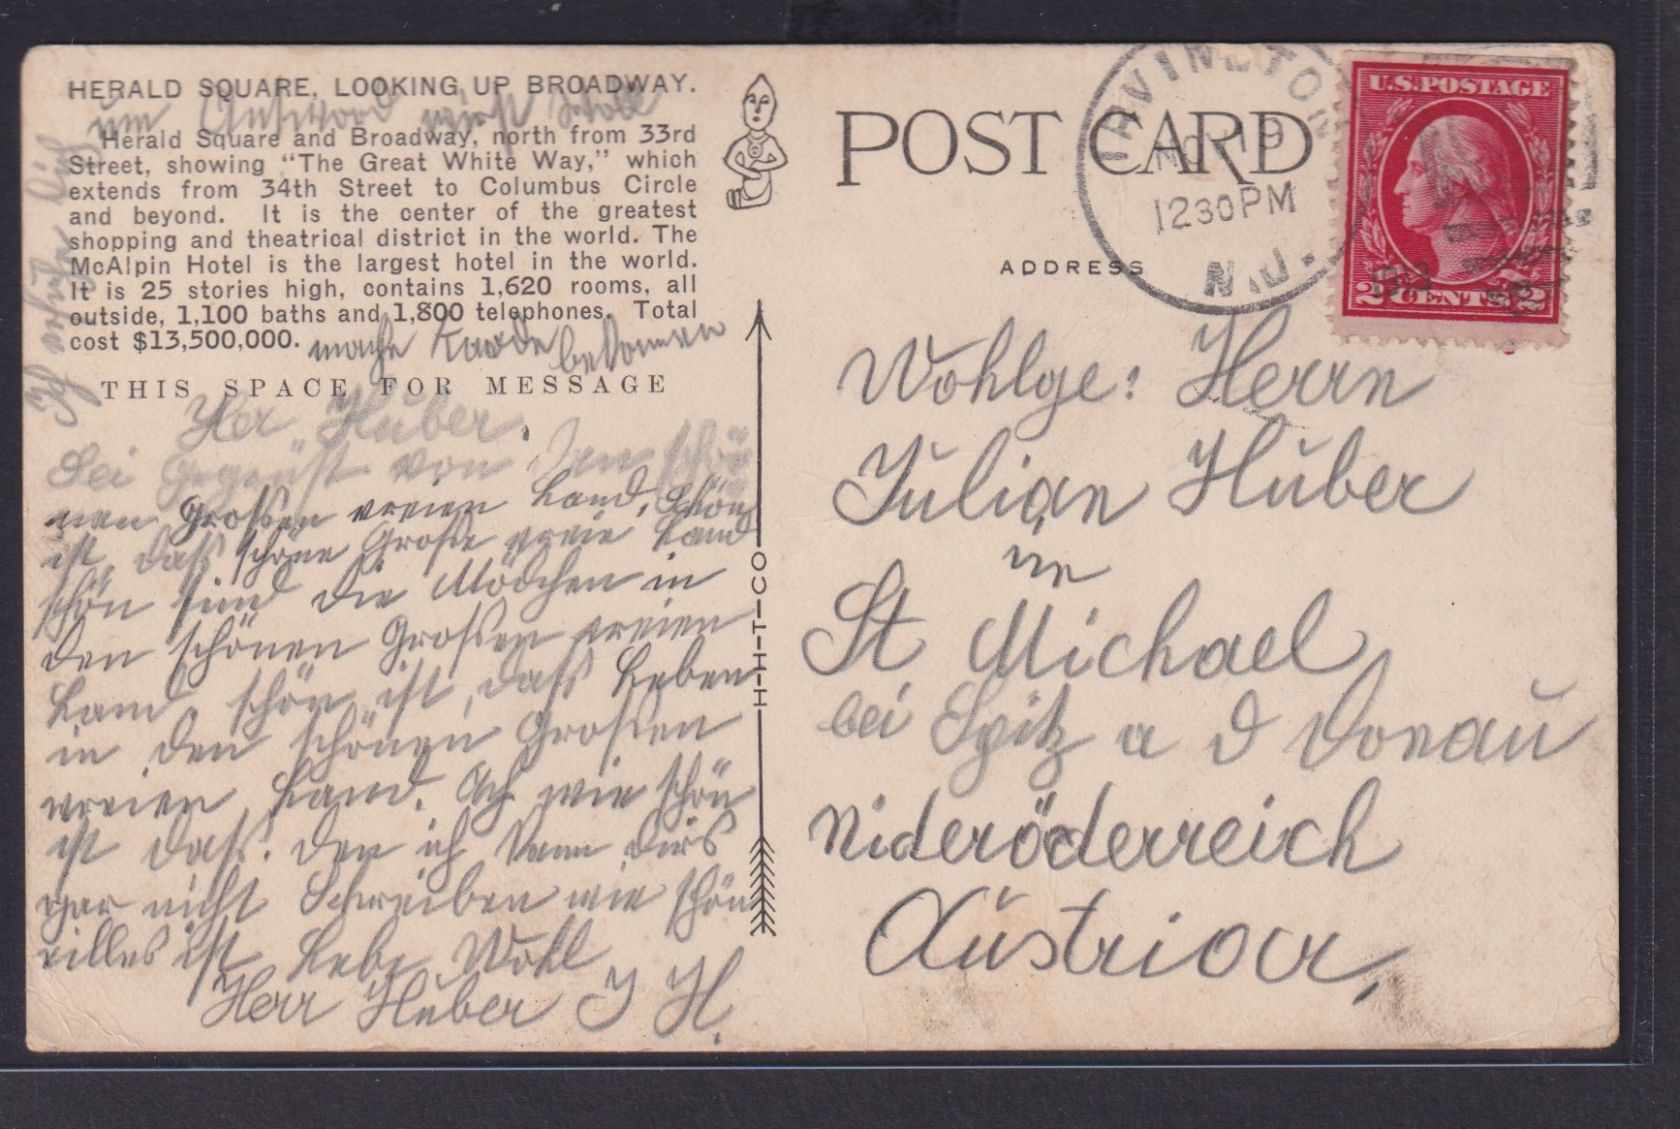 HERALD SQUARE, LOOKING UP BROADWAY.
um Antword wirst Woll
Herald Square and Broadway, north from 33rd
Street, showing "The Great White Way," which
extends from 34th Street to Columbus Circle
and beyond. It is the center of the greatest
shopping and theatrical district in the world. The
McAlpin Hotel is the largest hotel in the world.
It is 25 stories high, contains 1,620 rooms, all
outside, 1,100 baths and 1,800 telephones. Total
cost $13,500,000.
Karde bekommen
Ich dich
THIS SPACE FOR MESSAGE
Her Huber.
Sei gegrüst von den schö
nen Grossen vreien Land, schön
ist das schöne Grosse vreie Land
schön sind die Mädchen in
den schönen Grossen vreien
Land schön ist das Leben
in den schönen Grossen
vreien Land. Ach wie schön
ist das. Den ich kann dirs
gar nicht Schreiben wie schön
alles ist Lebe Wohl
Herr Huber J H.
H-H-T-CO
POST CARD
ADDRESS
IRVINGTON
NOV 19
1230PM
N.J.
1913
U.S. POSTAGE
2 CENTS 2
Wohlge: Herrn
Julian Huber
in
St Michael
bei Spitz a d Donau
Nideröderreich
Austria,